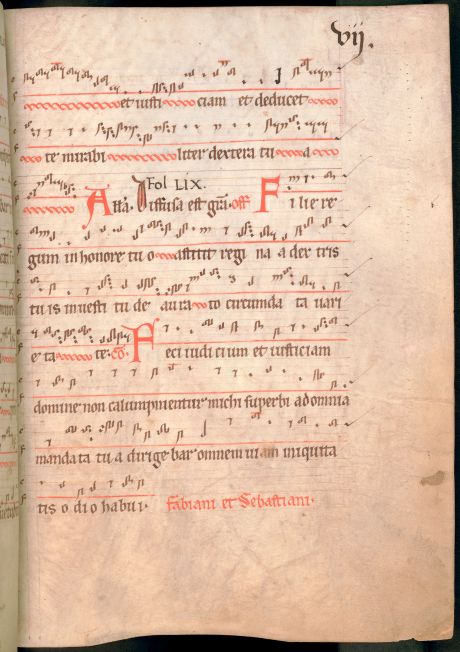 vij.
et iusti ciam et deducet
te mirabi liter dextera tu a
Fol LIX.
All'a. Diffusa est gra. off Filie re
gum in honore tu o astitit regi na a dex tris
tu is in uesti tu de aura to circumda ta uari
e ta te. co. Feci iudicium et iusticiam
domine non calumpnientur michi superbi ad omnia
mandata tu a dirige bar omnem uiam iniquita
tis o dio habui. Fabiani et Sebastiani.